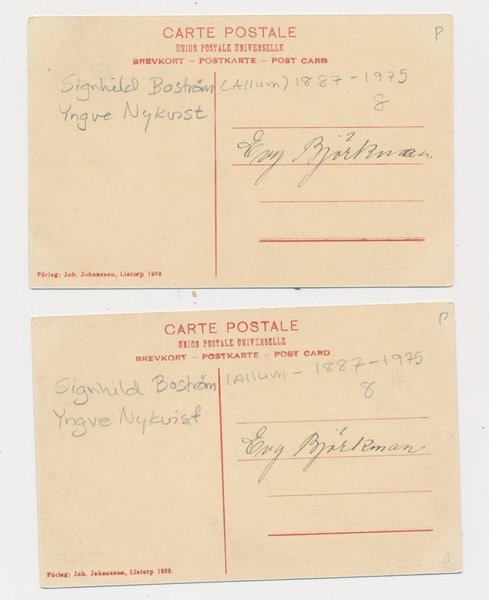 CARTE POSTALE
UNION POSTALE UNIVERSELLE
BREVKORT – POSTKARTE – POST CARD
P
Signhild Boström (Allum) 1887-1975
8
Yngve Nykvist
Evy Björkman
Förlag: Joh. Johansson, Listorp 1909.
CARTE POSTALE
UNION POSTALE UNIVERSELLE
BREVKORT – POSTKARTE – POST CARD
P
Signhild Boström (Allum - 1887-1975
8
Yngve Nykvist
Evy Björkman
Förlag: Joh. Johansson, Listorp 1909.